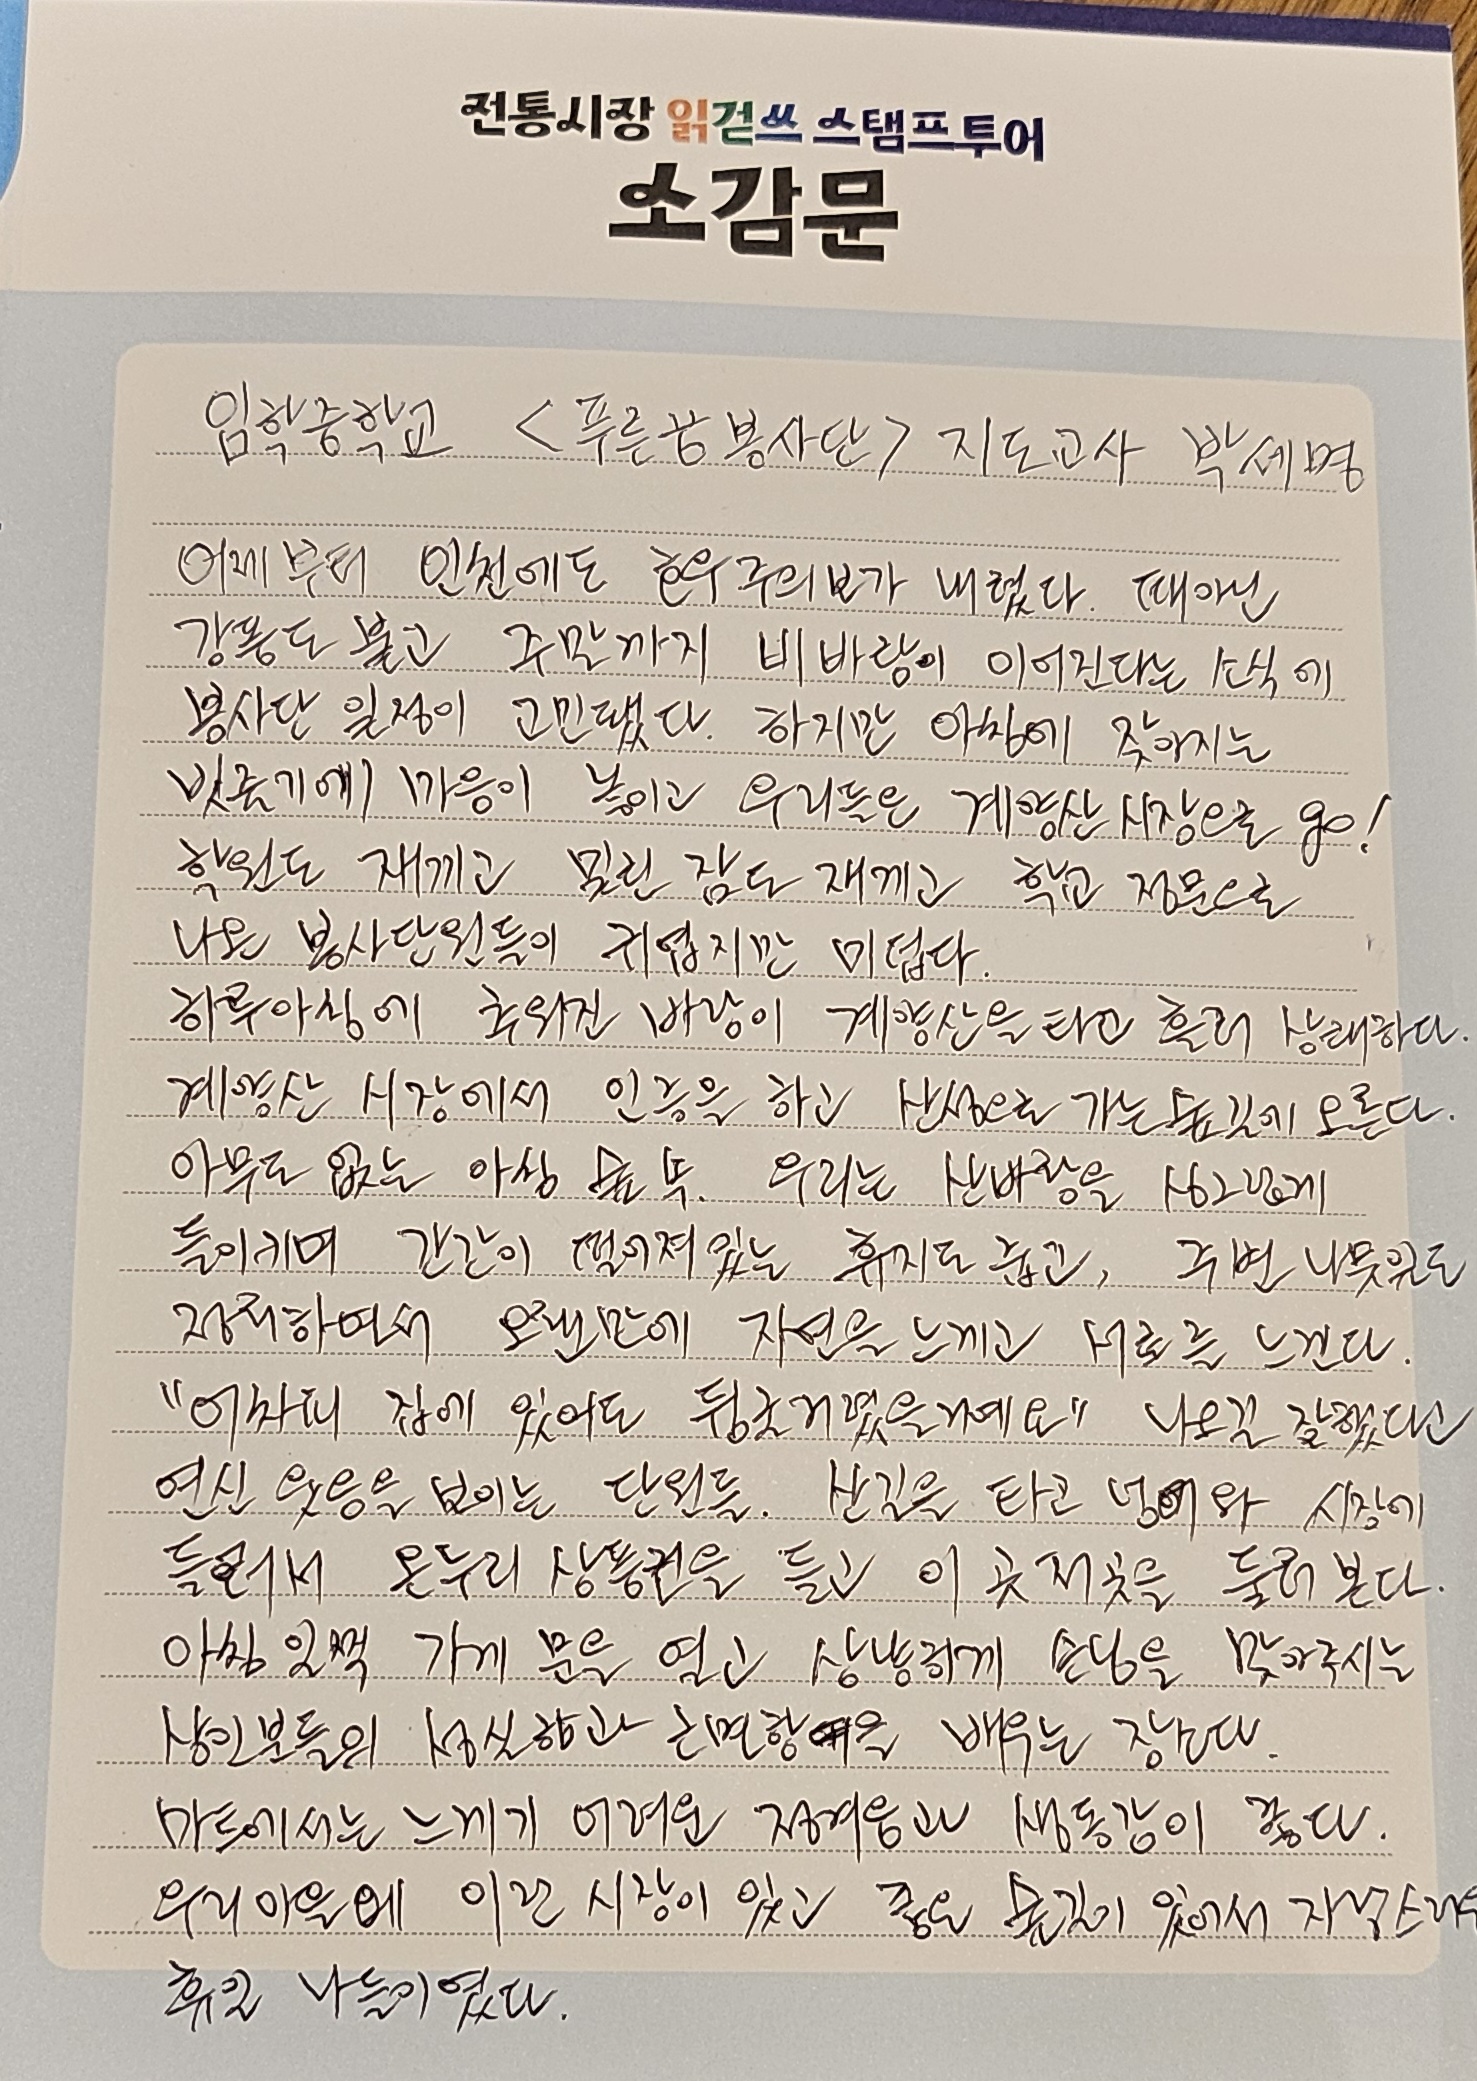 전통시장 읽걷쓰 스탬프투어
소감문
임학중학교 <푸른꿈봉사단> 지도교사 박세명
어제부터 인천에도 호우주의보가 내렸다. 때아닌
강풍도 불고 주말까지 비바람이 이어진다는 소식에
봉사단 일정이 고민됐다. 하지만 아침에 잦아지는
빗줄기에 마음이 놓이고 우리들은 계양산시장으로 go!
학원도 재끼고 밀린 잠도 재끼고 학교 정문으로
나온 봉사단원들이 귀엽지만 미덥다.
하루아침에 추워진 바람이 계양산을 타고 흘러 상쾌하다.
계양산 시장에서 인증을 하고 산성으로 가는 숲길에 오른다.
아무도 없는 아침 숲 속. 우리는 산바람을 싱그럽게
들이키며 간간이 떨어져있는 휴지도 줍고, 주변 나뭇잎도
정리하면서 오랜만에 자연을 느끼고 서로를 느낀다.
"어차피 집에 있어도 뒹굴거렸을거예요" 나오길 잘했다고
연신 웃음을 보이는 단원들. 산길을 타고 넘어와 시장에
들러서 온누리 상품권을 들고 이곳저곳을 둘러본다.
아침 일찍 가게 문을 열고 상냥하게 손님을 맞아주시는
상인분들의 성실함과 근면함을 배우는 장소다.
마트에서는 느끼기 어려운 정겨움과 생동감이 좋다.
우리 마을에 이런 시장이 있고 좋은 숲길이 있어서 자랑스러운
휴일 나들이였다.